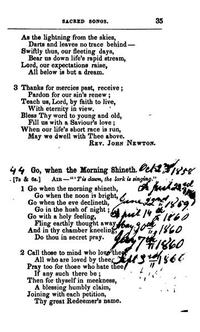 SACRED SONGS. 35
As the lightning from the skies,
Darts and leaves no trace behind—
Swiftly thus, our fleeting days,
Bear us down life's rapid stream,
Lord, our expectations raise,
All below is but a dream.
3 Thanks for mercies past, receive;
Pardon for our sin's renew;
Teach us, Lord, by faith to live,
With eternity in view.
Bless Thy word to young and old,
Fill us with a Saviour's love;
When our life's short race is run,
May we dwell with Thee above.
REV. JOHN NEWTON.
44 Go, when the Morning Shineth.
[7s & 6s.] AIR—"'Tis dawn, the lark is singing."
1 Go when the morning shineth,
Go when the noon is bright,
Go when the eve declineth,
Go in the hush of night;
Go with a holy feeling,
Fling earthly thought away,
And in thy chamber kneeling,
Do thou in secret pray.
June 22nd 1859
April 14th 1860
1860
1860
2 Call those to mind who love thee,
All who are loved by thee,
Pray too for those who hate thee
If any such there be;
Then for thyself in meekness,
A blessing humbly claim,
Joining with each petition,
Thy great Redeemer's name.